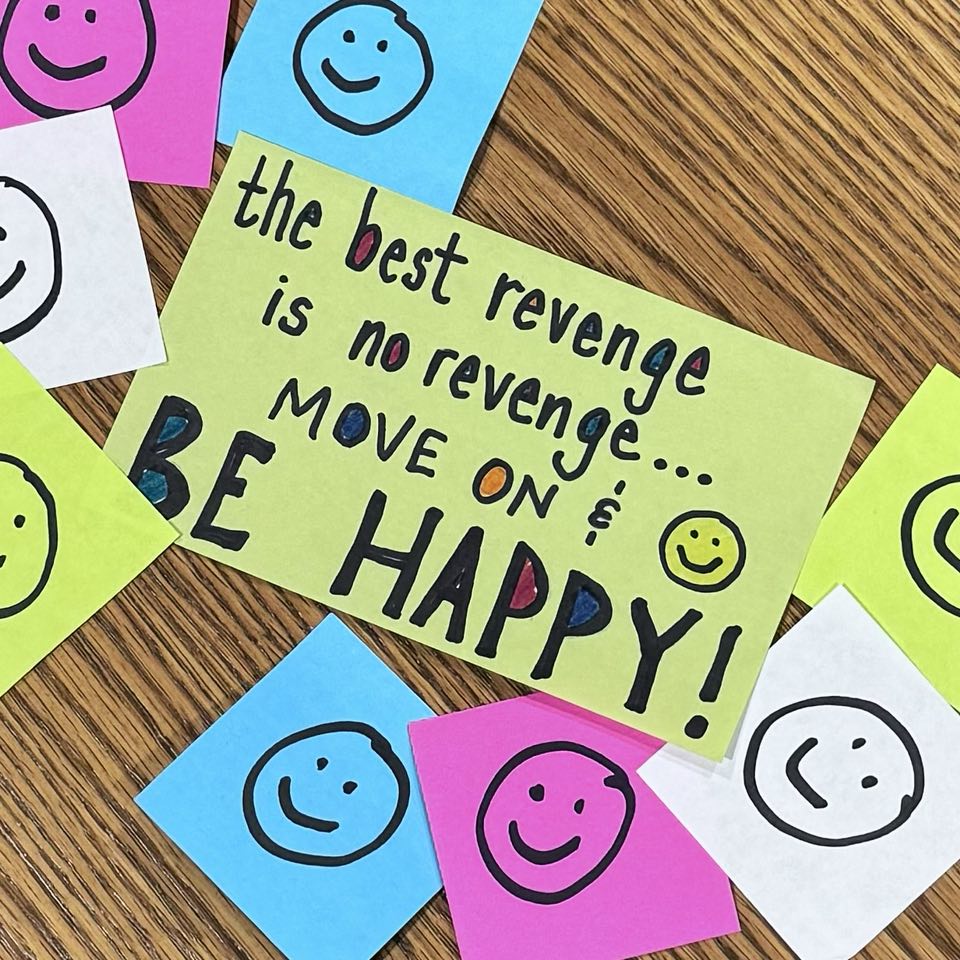 the best revenge
is no revenge...
MOVE ON &
BE HAPPY!